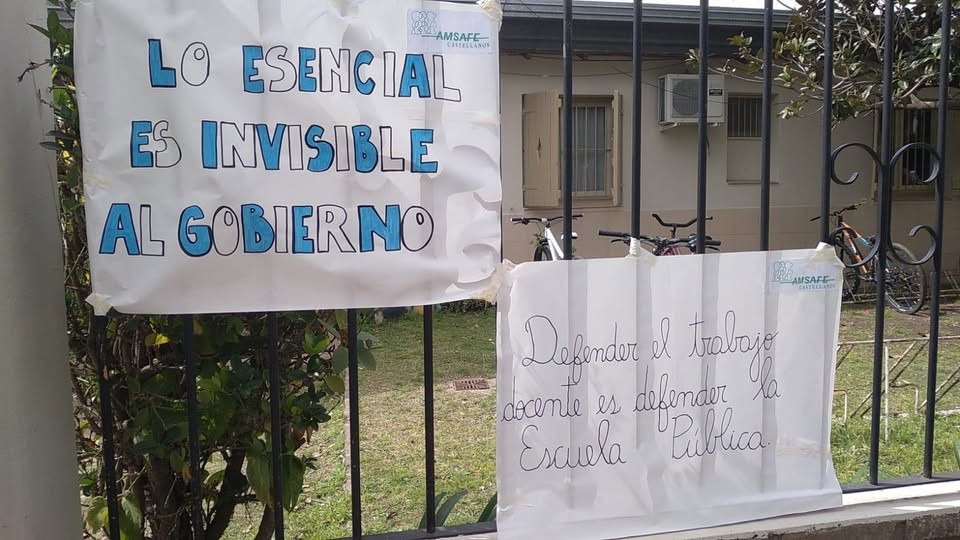 AMSAFE
CASTELLANOS
LO ESENCIAL
ES INVISIBLE
AL GOBIERNO
AMSAFE
CASTELLANOS
Defender el trabajo
docente es defender la
Escuela Pública.